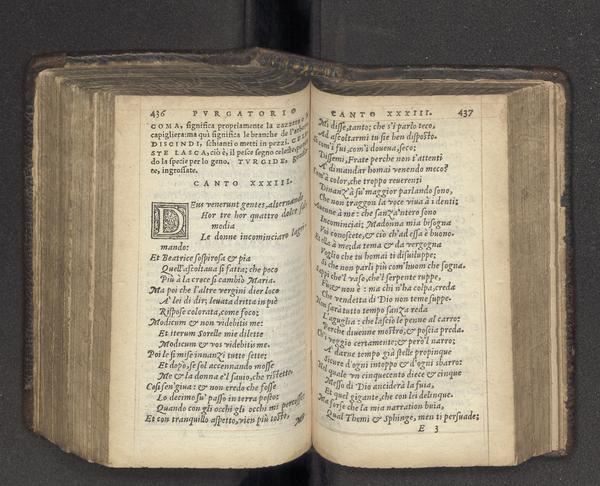 436 PVRGATORIO
COMA, significa propriamente la zazzera, o
capigliera: ma quì significa le branche de l'arbore.
DISCINDI, schianti o metti in pezzi. CELE
STE LASCA, ciò è, il pesce segno celeste, ponen
do la specie per lo geno, TVRGIDE, gonfia
te, ingrossate.
CANTO XXXIII.
DEus venerunt gentes, alternando
Hor tre hor quattro dolce sal
modia
Le donne incominciaro lagri-
mando:
Et Beatrice sospirosa & pia
Quell'ascoltaua sì fatta; che poco
Più à la croce si cambiò Maria.
Ma poi che l'altre vergini dier loco
A' lei di dir; leuata dritta in piè
Rispose colorata, come foco:
Modicum & non videbitis me:
Et iterum Sorelle mie dilette
Modicum & vos videbitis me.
Poi le si mise innanzi tutte sette;
Et dopò, se sol accennando mosse
Me & la donna e'l sauio, che ristette.
Così sen' giua: & non credo che fosse
Lo decimo su' passo in terra posto;
Quando con gli occhi gli occhi mi percosse:
Et con tranquillo aspetto, vien più tosto,
Mi
CANTO XXXIII. 437
Mi disse, tanto; che s'i parlo teco,
Ad ascoltarmi tu sie ben disposto.
Sì com'i fui, com'i doueua, seco;
Dissemi, Frate perche non t'attenti
A' dimandar homai venendo meco?
Com'à color, che troppo reuerenti
Dinanzi à su' maggior parlando sono,
Che non traggon la voce viua à i denti;
Auenne à me: che sanza 'ntero sono
Incominciai; Madonna mia bisogna
Voi conoscete, & ciò ch'ad essa è buono.
Et ella à me; da tema & da vergogna
Voglio che tu homai ti disuiluppe;
Sì che non parli più com'huom che sogna.
Sappi che'l vaso, che'l serpente ruppe,
Fu, & non è: ma chi n'ha colpa, creda
Che vendetta di Dio non teme suppe.
Non sarà tutto tempo sanza reda
L'aguglia: che lasciò le penne al carro:
Perche diuenne mostro, & poscia preda.
Ch'i veggio certamente; & però'l narro;
A' darne tempo già stelle propinque
Sicure d'ogni intoppo & d'ogni sbarro:
Nel quale vn cinquecento diece & cinque
Messo di Dio anciderà la fuia,
Et quel gigante, che con lei delinque.
Ma forse che la mia narration buia,
Qual Themi & Sphinge, men ti persuade;
E 3